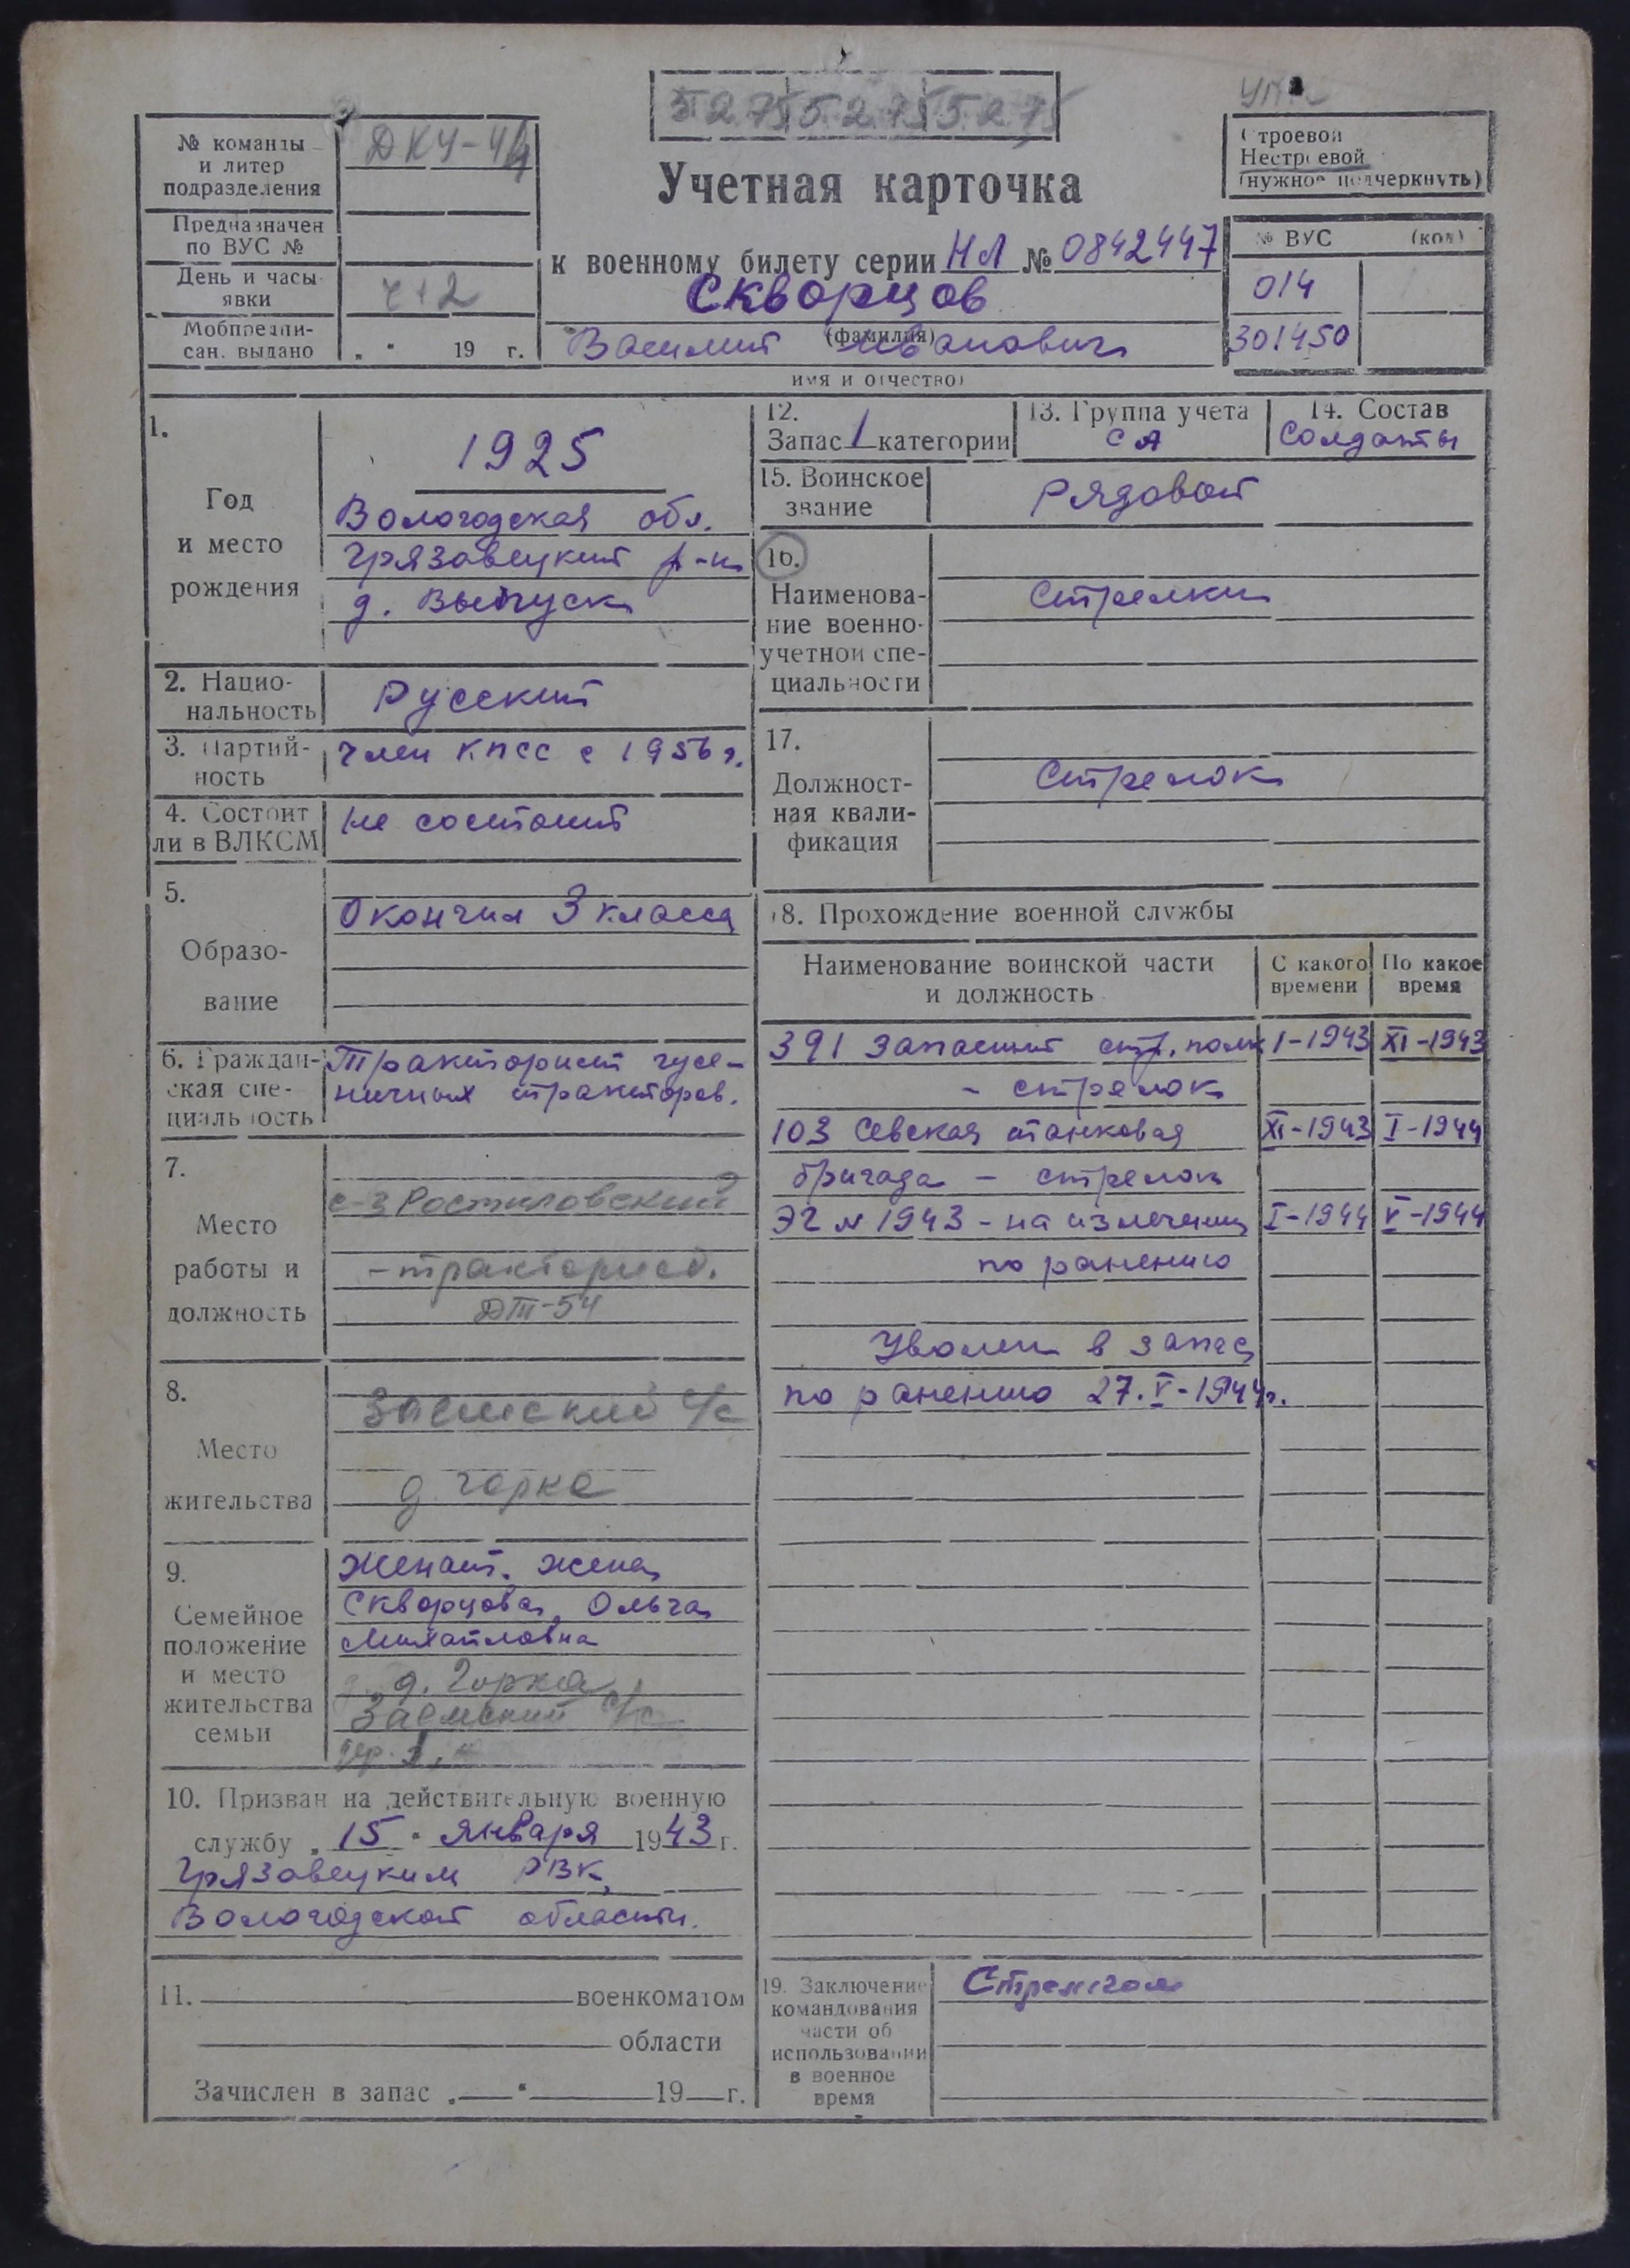 5275 5275 5275
№ команды
и литер
подразделения
ДКУ-44
Предназначен
по ВУС №
День и часы
явки
ч+2
Мобпредпи-
сан. выдано
„ " 19 г.
Учетная карточка
к военному билету серии НЛ № 0842447
Скворцов
(фамилия)
Василий Иванович
имя и отчество)
Строевой
Нестроевой
(нужное подчеркнуть)
№ ВУС (код)
014
301450
1.
Год
и место
рождения
1925
Вологодская обл.
Грязовецкий р-н
д. Выпуск
2. Нацио-
нальность
Русский
3. Партий-
ность
член КПСС с 1956 г.
4. Состоит
ли в ВЛКСМ
не состоит
5.
Образо-
вание
Окончил 3 класса
6. Граждан-
ская спе-
циальность
Тракторист гусе-
ничных тракторов.
7.
Место
работы и
должность
с-з Ростиловский
-тракторист.
ДТ-54
8.
Место
жительства
Заемский с/с
д. Горка
9.
Семейное
положение
и место
жительства
семьи
Женат. жена
Скворцова Ольга
Михайловна
д. Горка
Заемский с/с
10. Призван на действительную военную
службу „15" января 1943 г.
Грязовецким РВК,
Вологодской области.
11. военкоматом
области
Зачислен в запас „ " 19 г.
12.
Запас 1 категории
13. Группа учета
СА
14. Состав
Солдаты
15. Воинское
звание
Рядовой
16.
Наименова-
ние военно-
учетной спе-
циальности
Стрелки
17.
Должност-
ная квали-
фикация
Стрелок
18. Прохождение военной службы
Наименование воинской части
и должность
С какого
времени
По какое
время
391 запасный стр. полк I-1943 XI-1943
- стрелок
103 Севская танковая XI-1943 I-1944
бригада - стрелок
ЭГ № 1943 - на излечении I-1944 V-1944
по ранению
Уволен в запас
по ранению 27.V-1944г.
19. Заключение
командования
части об
использовании
в военное
время
Стрелком